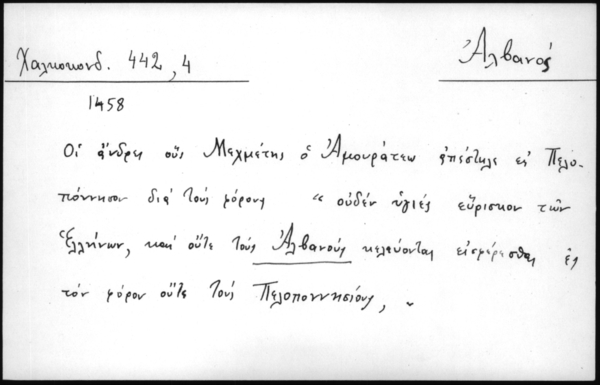 Χαλκοκονδ. 442, 4
Ἀλβανός
1458
Οἱ ἄνδρες οὓς Μεχμέτης ὁ Ἀμουράτεω ἀπέστειλε εἰς Πελο-
πόννησον διὰ τοὺς φόρους “ οὐδέν ὑγιές εὕρισκον τῶν
Ἑλλήνων, καὶ οὔτε τοὺς Ἀλβανοὺς κελεύονται εἰσφέρεσθαι ἐς
τὸν φόρον οὔτε τοὺς Πελοποννησίους, „